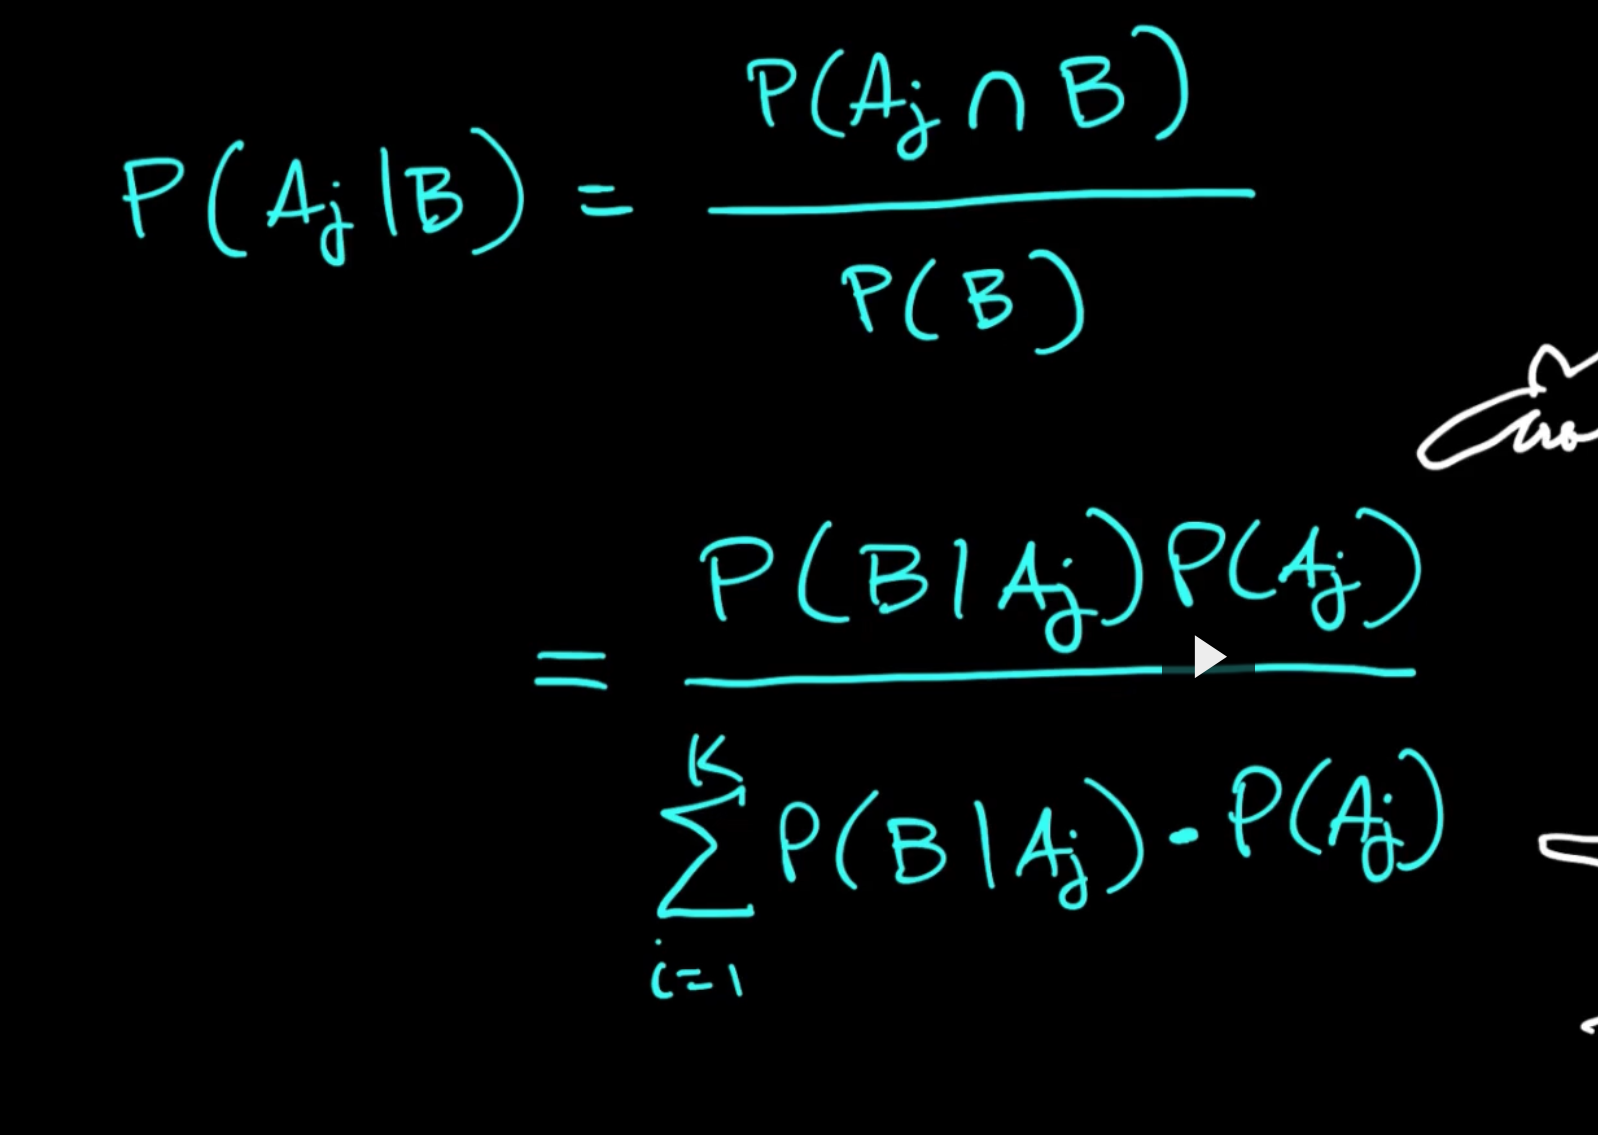 P(Aj|B) = P(Aj ∩ B) / P(B)
= P(B|Aj)P(Aj) / ∑_{i=1}^{K} P(B|Aj) · P(Aj)